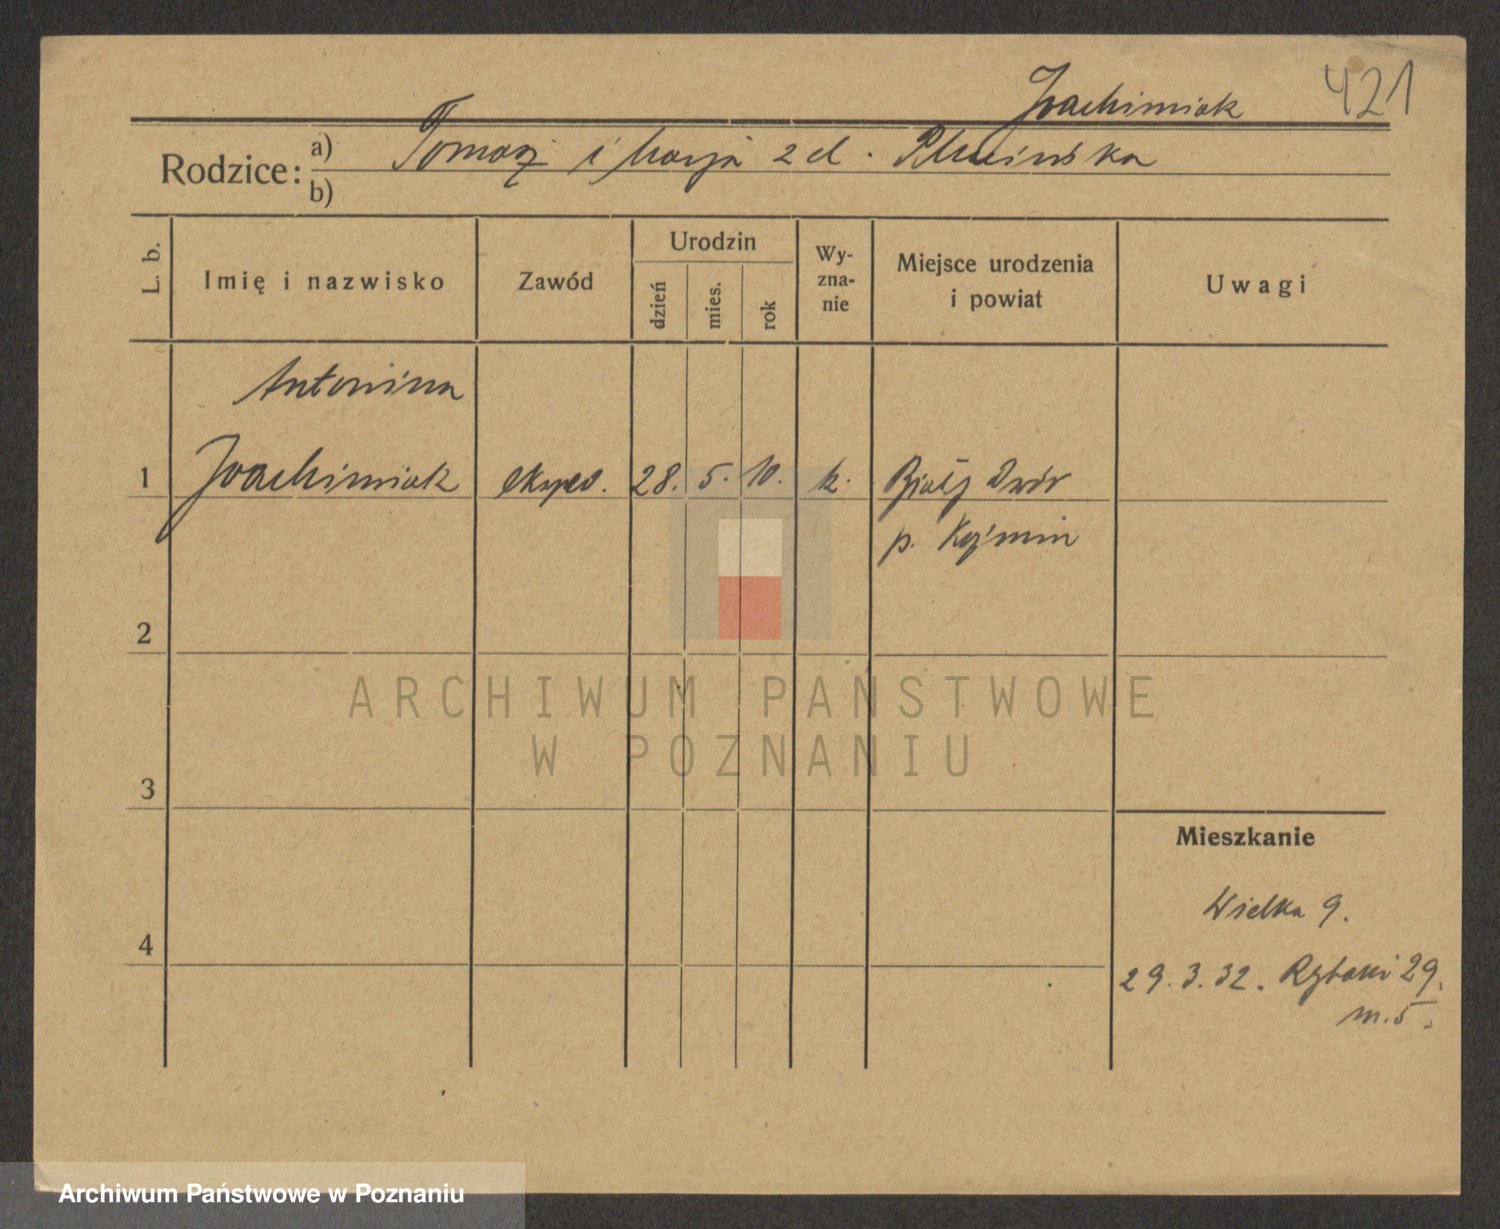 Joachimiak 421
Rodzice: a) Tomasz i Marja z d. Plucińska
b)
L. b. Imię i nazwisko Zawód Urodzin dzień mies. rok Wyznanie Miejsce urodzenia i powiat Uwagi
Antonina
1 Joachimiak eksped. 28. 5. 10. k. Biały Dwór
p. Koźmin
2
ARCHIWUM PAŃSTWOWE
W POZNANIU
3
Mieszkanie
Wielka 9.
4
29.3.32. Rybaki 29.
m.5.
Archiwum Państwowe w Poznaniu